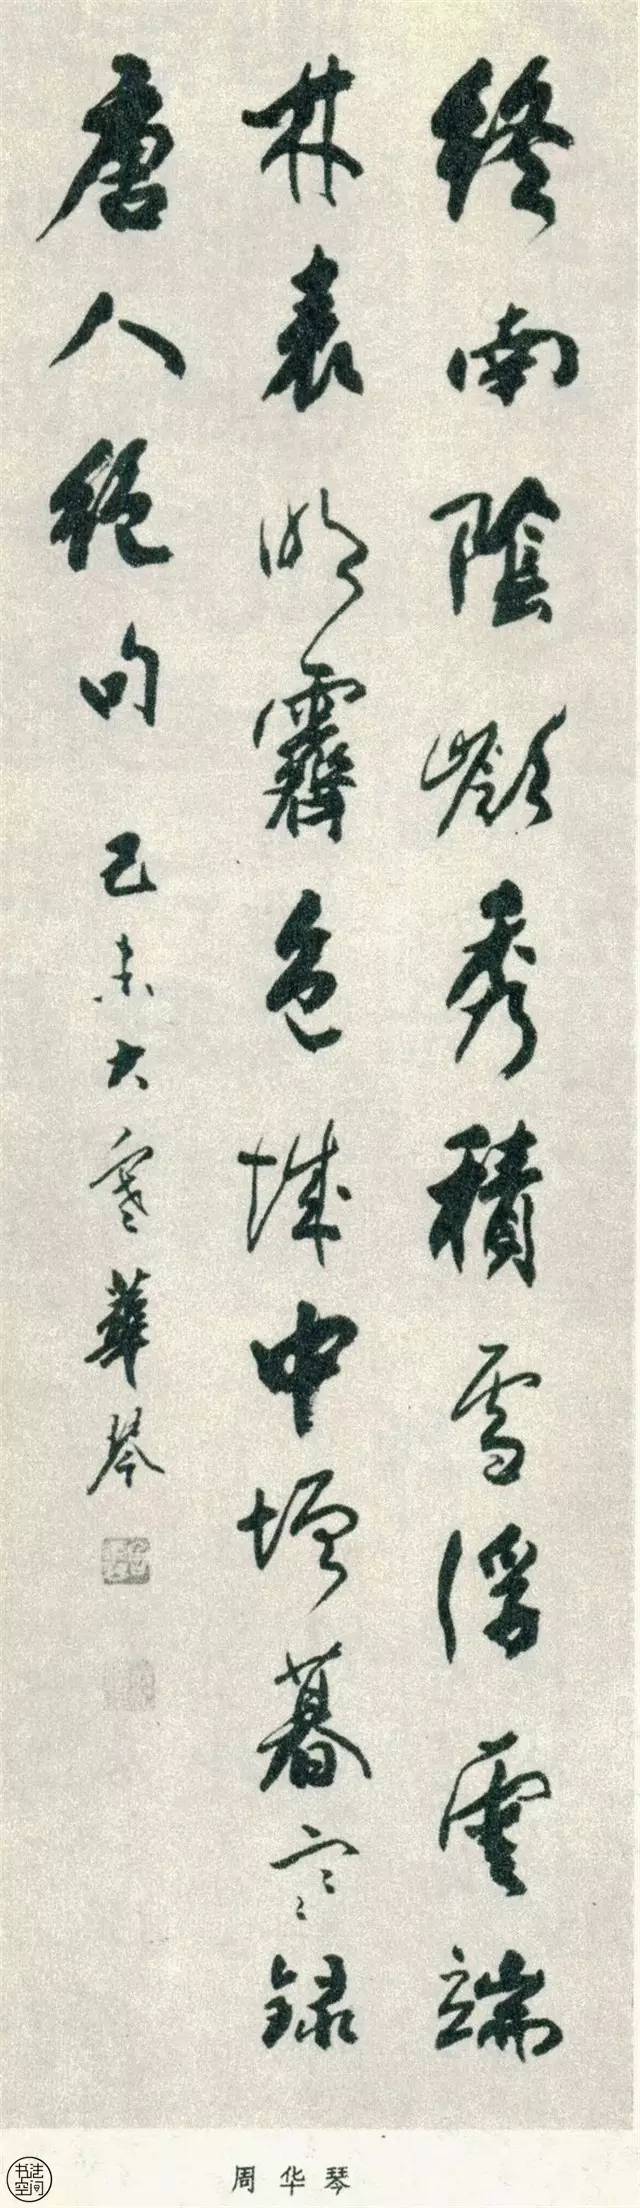 終南陰嶺秀積雪浮雲端
林表明霽色城中增暮寒録
唐人絕句己未大寒華琴
周华琴
书法空间